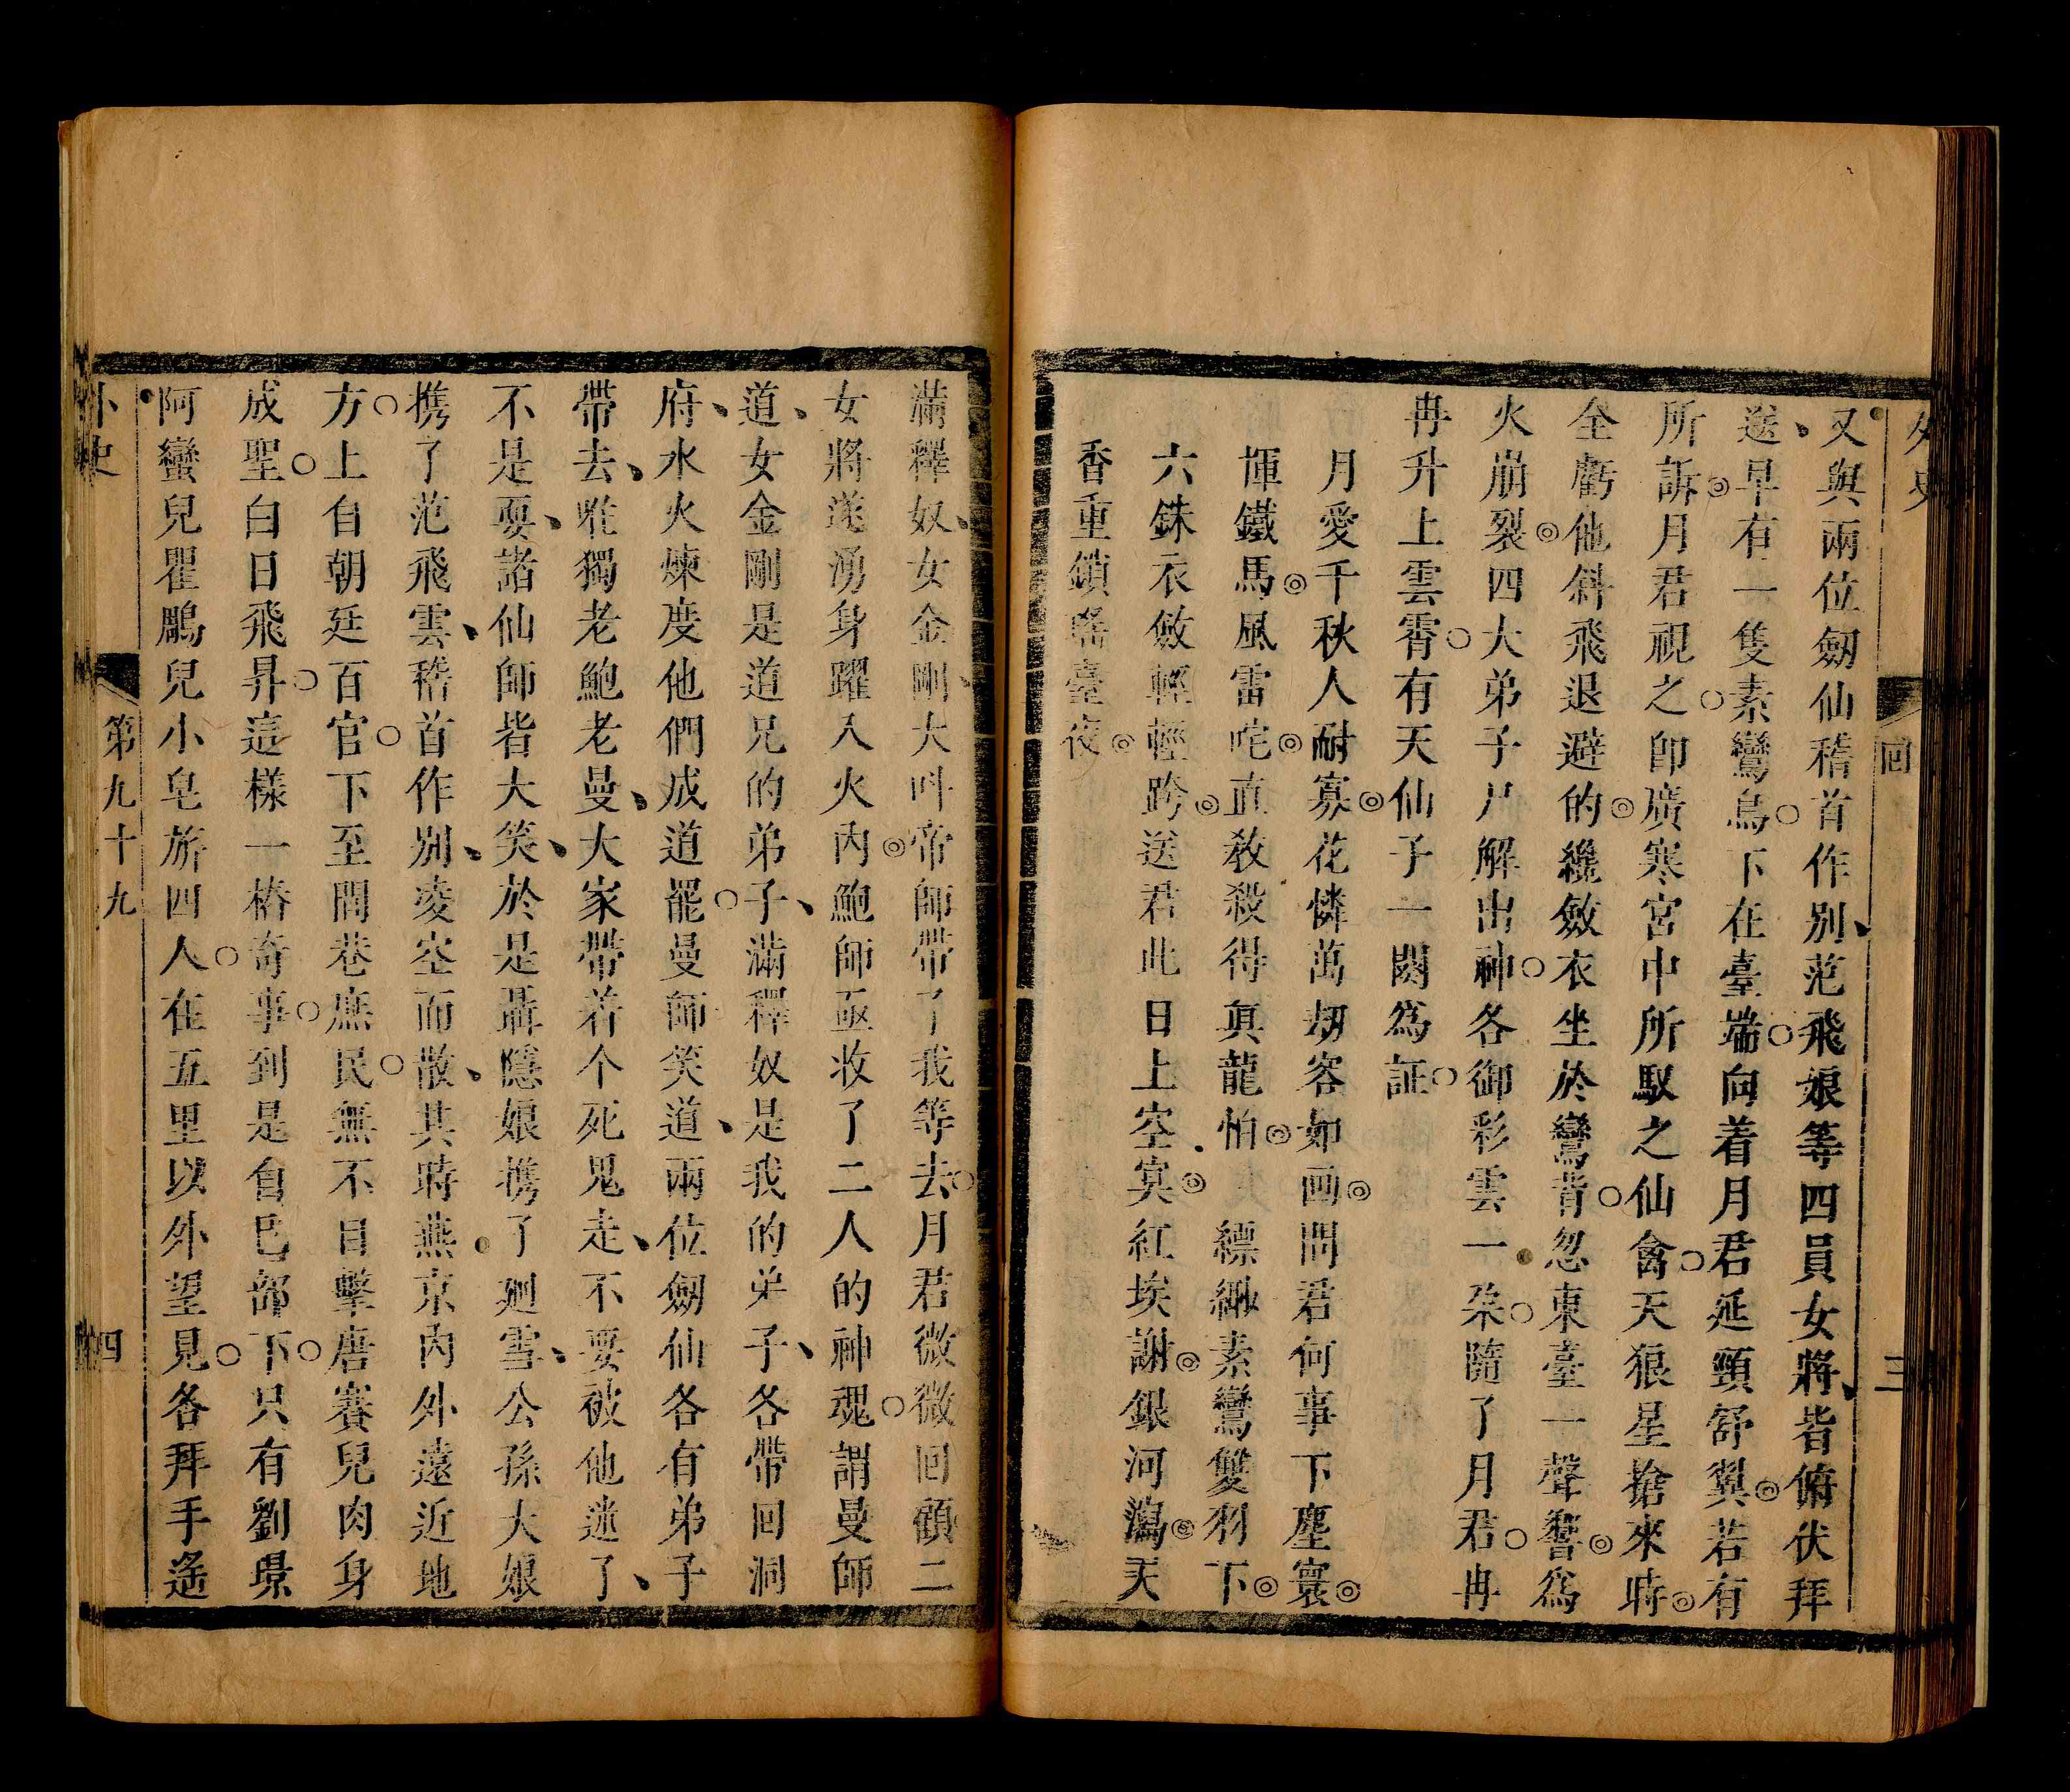 外史
回
三
又與兩位劒仙稽首作別范飛娘等四員女將皆俯伏拜
送早有一隻素鸞鳥下在臺端向着月君延頸舒翼若有
所訴月君視之卽廣寒宮中所馭之仙禽天狼星搶來時
全虧他斜飛退避的纔斂衣坐於鸞背忽東臺一聲響爲
火崩裂四大弟子尸解出神各御彩雲一朶隨了月君冉
冉升上雲霄有天仙子一闋爲証
月愛千秋人耐寡花憐萬刼客如画問君何事下塵寰
揮鐵馬風雷咤直敎殺得眞龍怕 縹緲素鸞雙羽下
六銖衣斂輕輕跨送君此日上空寞紅埃謝銀河瀉天
香重鎖瑤臺夜
滿釋奴女金剛大呌帝師帶了我等去月君微微回顧二
女將遂湧身躍入火內鮑師亟收了二人的神魂謂曼師
道女金剛是道兄的弟子滿釋奴是我的弟子各帶回洞
府水火煉度他們成道罷曼師笑道兩位劒仙各有弟子
帶去唯獨老鮑老曼大家帶着个死鬼走不要被他迷了
不是耍諸仙師皆大笑於是聶隱娘携了廻雪公孫大娘
携了范飛雲稽首作別凌空而散其時燕京內外遠近地
方上自朝廷百官下至閭巷庶民無不目擊唐賽兒肉身
成聖白日飛昇這樣一樁奇事到是自巳部下只有劉璟
阿蠻兒瞿鵰兒小皂旂四人在五里以外望見各拜手遙
外史
第九十九
四